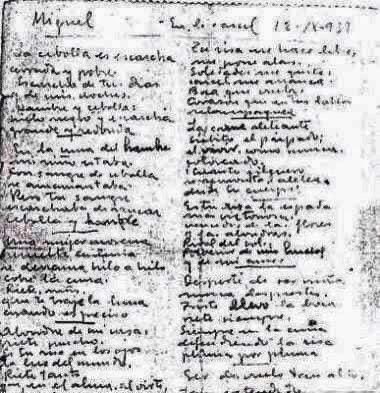 Miguel
En la cárcel 12-IX-939
La cebolla es escarcha
cerrada y pobre.
Escarcha de tus días
y de mis noches.
Hambre y cebolla,
hielo negro y escarcha
grande y redonda
En la cuna del hambre
mi niño estaba.
Con sangre de cebolla
se amamantaba.
Pero tu sangre
escarchada de azúcar
cebolla y hambre
Una mujer morena
resuelta en luna
se derrama hilo a hilo
sobre la cuna.
Ríete, niño,
que te traigo la luna
cuando es preciso
Alondra de mi casa,
ríete mucho.
Es tu risa en los ojos
la luz del mundo.
Ríete tanto
que en el alma, al oírte,
Tu risa me hace libre,
me pone alas.
Soledades me quita,
cárcel me arranca.
Boca que vuela,
corazón que en tus labios
relampaguea
el párpado,
el vivir como nunca
coloreado.
Cuánto jilguero
se remonta, aletea,
desde tu cuerpo.
Es tu risa la espada
más victoriosa.
vencedor de las flores
y las alondras.
Rival del sol,
porvenir de mis huesos
y de mi amor
Desperté de ser niño
nunca despiertes.
Triste llevo la boca
ríete siempre.
Siempre en la cuna
defendiendo la risa
pluma por pluma
Ser de vuelo tan alto,
tan extendido